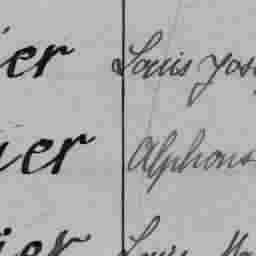 ier Louis Jos
ier Alphons
ier Louis